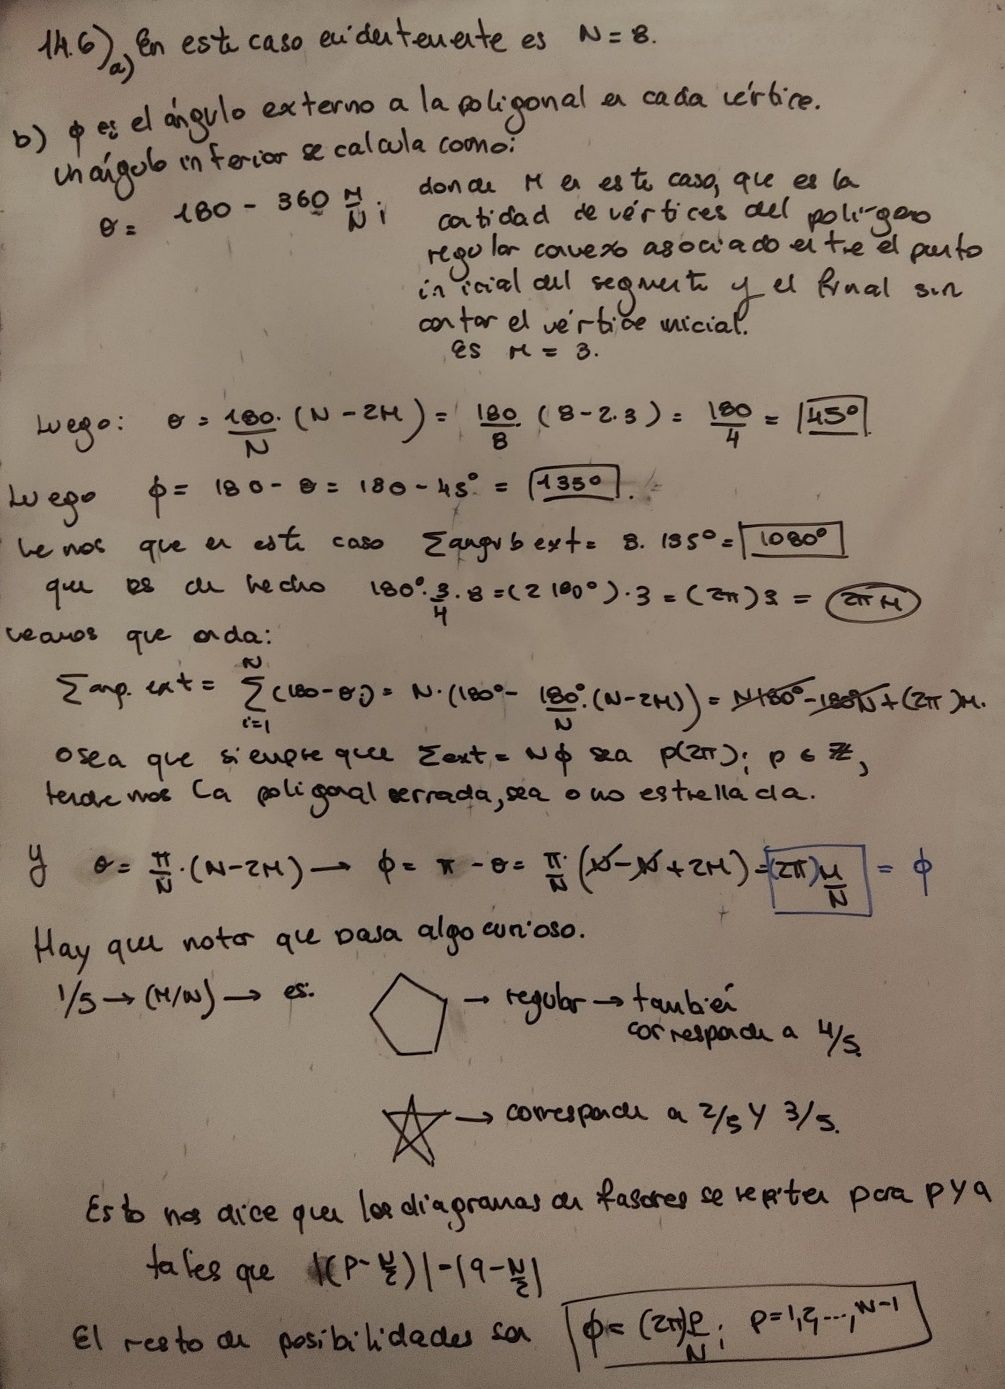 14.6) a) En este caso evidentemente es N = 8.
b) φ es el ángulo externo a la poligonal en cada vértice.
Un ángulo inferior se calcula como:
θ = 180 - 360 M/N ;
donde M en este caso, que es la
cantidad de vértices del polígono
regular convexo asociado entre el punto
inicial del segmento y el final sin
contar el vértice inicial.
es M = 3.
Luego: θ = 180/N · (N - 2M) = 180/8 · (8 - 2·3) = 180/4 = 45º
Luego φ = 180 - θ = 180 - 45º = 135º.
Vemos que en este caso Σ angulo ext = 8. 135º = 1080º
que es de hecho 180º · 3/4 · 8 = (2 180º) · 3 = (2π) 3 = 2πM
veamos que onda:
Σ ang. ext = Σ_{i=1}^{N} (180 - θi) = N · (180º - 180º/N · (N - 2M)) = N180º - 180ºN + (2π)M.
Osea que siempre que Σext = Nφ sea p(2π); p ∈ ℤ,
tendremos la poligonal cerrada, sea o no estrellada.
Y θ = π/N · (N - 2M) → φ = π - θ = π/N · (N - N + 2M) = (2π) M/N = φ
Hay que notar que pasa algo curioso.
1/5 → (M/N) → es: → regular → también
corresponde a 4/5.
→ corresponde a 2/5 Y 3/5.
Esto nos dice que los diagramas de fasores se repiten para p y q
tales que |(p - N/2)| = |q - N/2|
El resto de posibilidades son φ = (2π) p/N ; p = 1, 2, ..., N-1